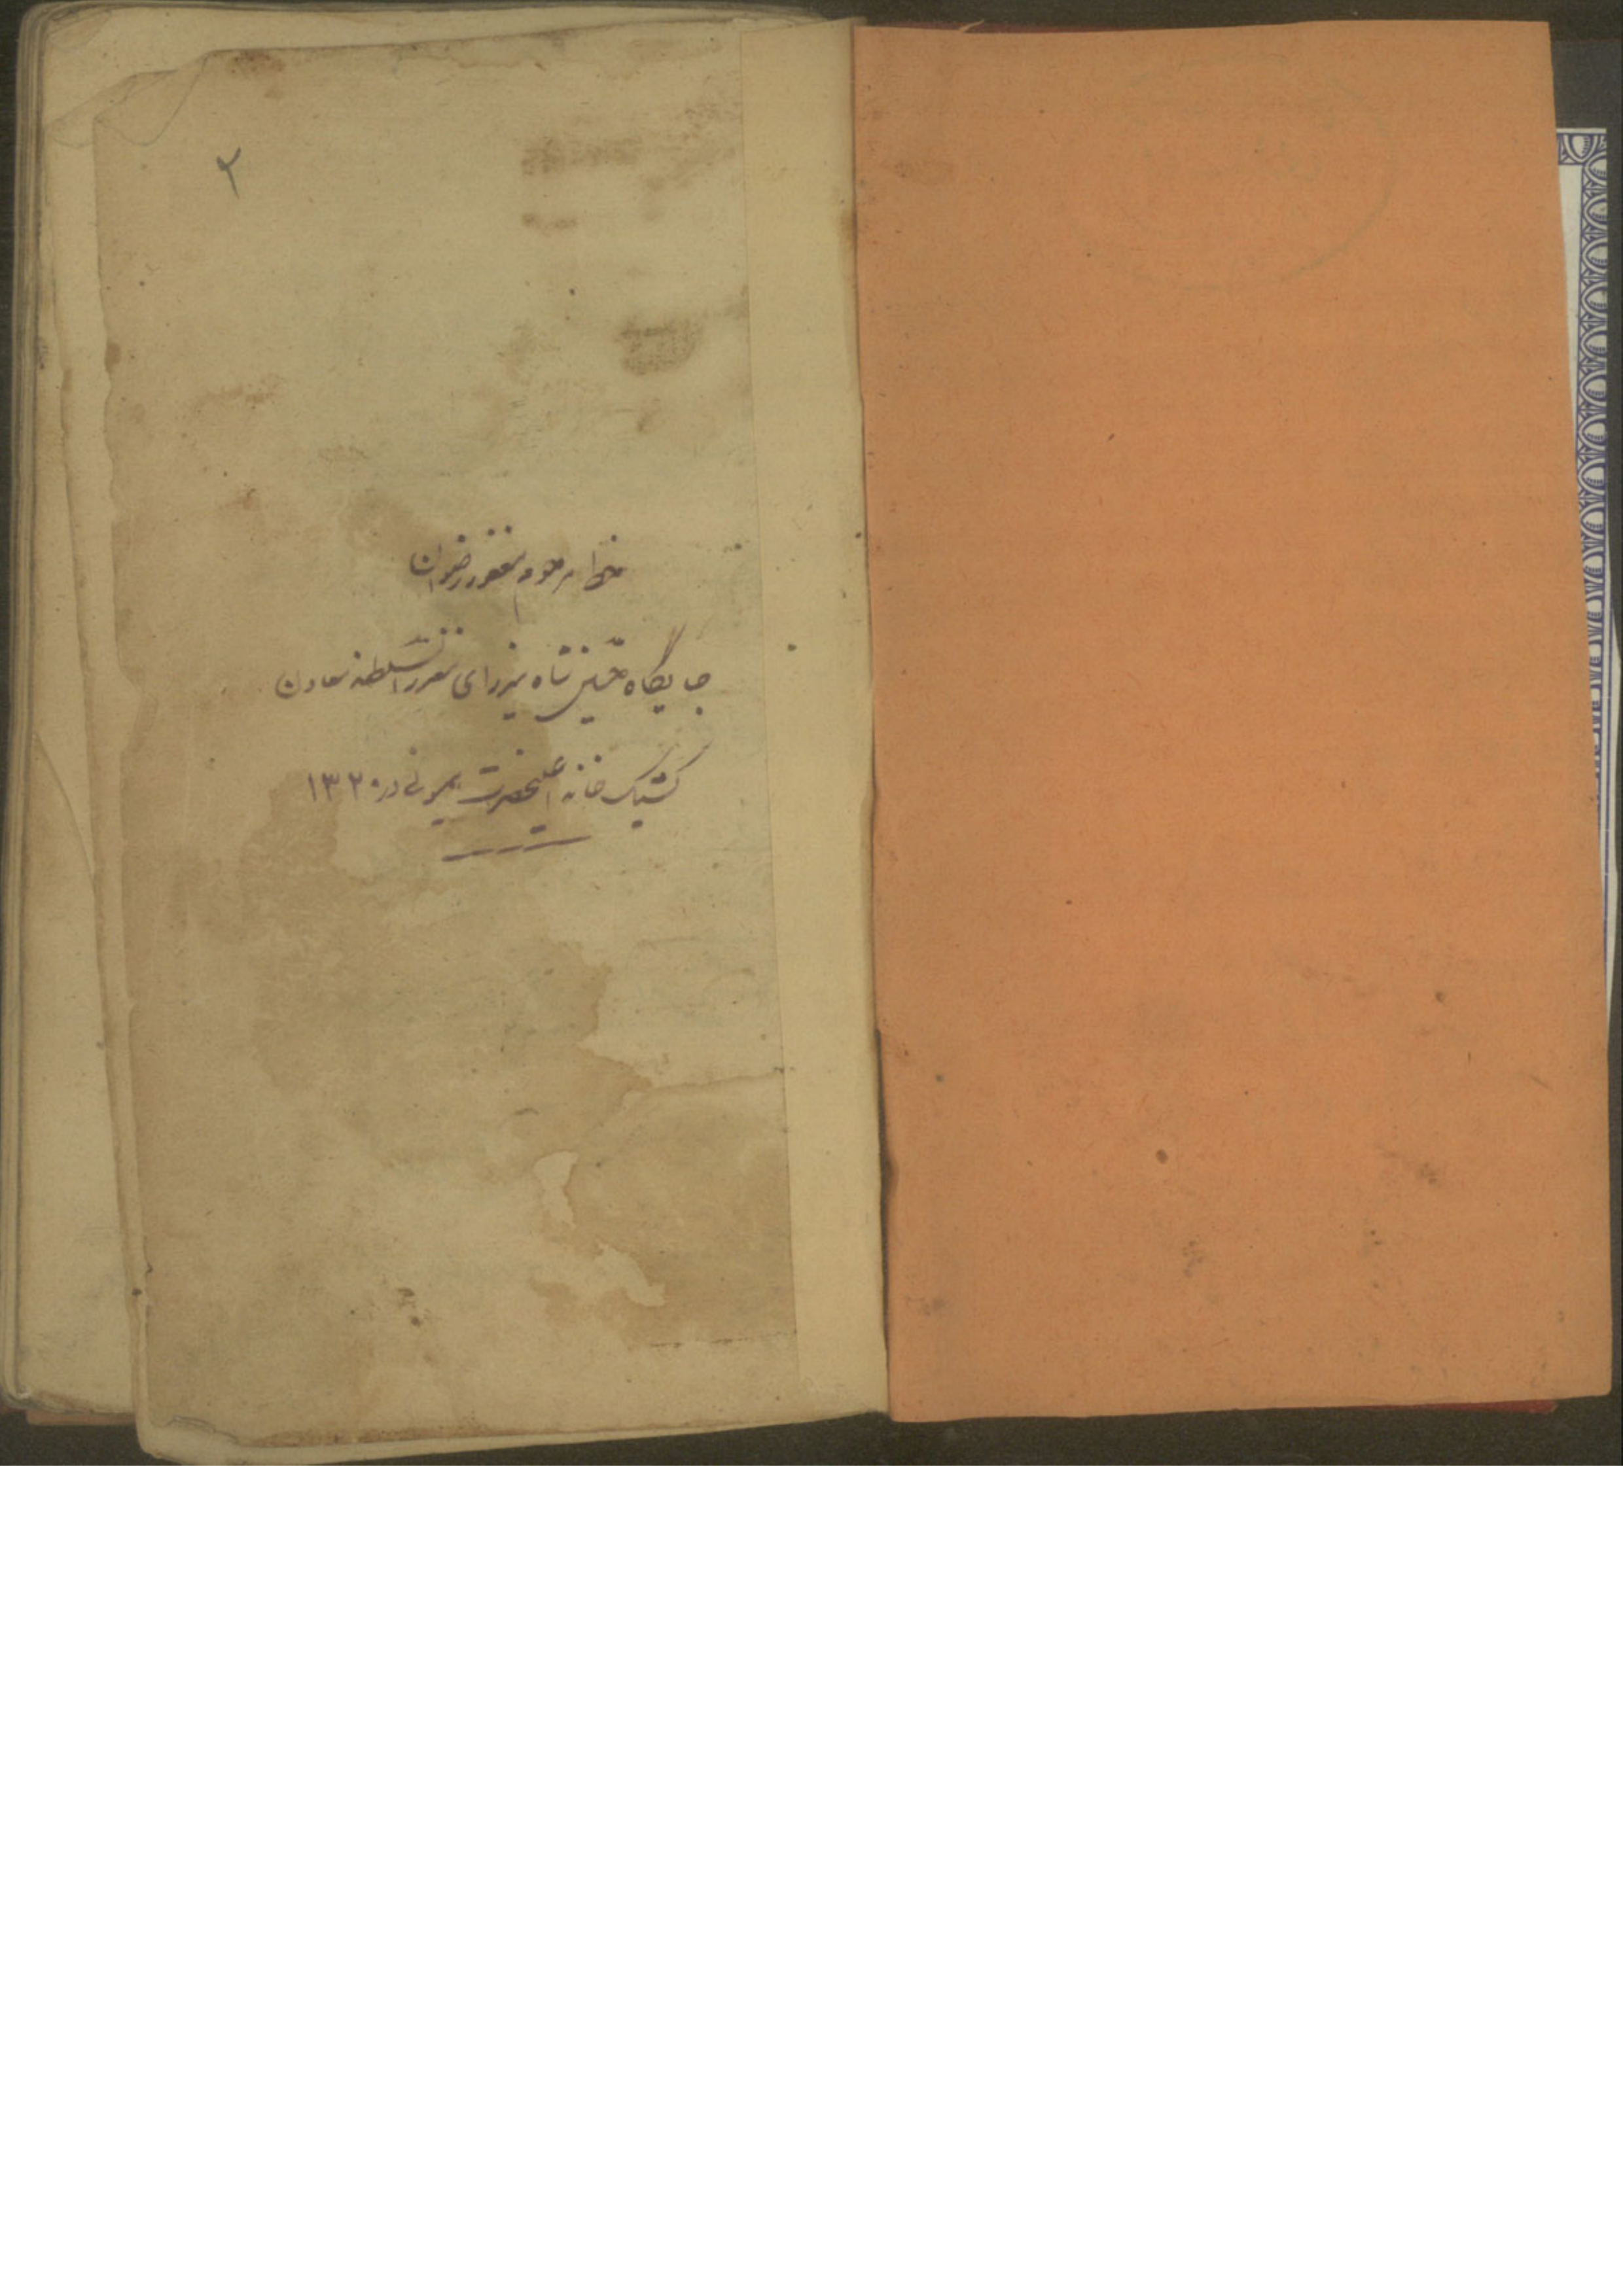 ۲
خط مرحوم مغفور رضوان
جایگاه حسین شاه میرزای معزز السلطنه معاون
کشیک خانه اعلیحضرت همیونی در ۱۳۲۰